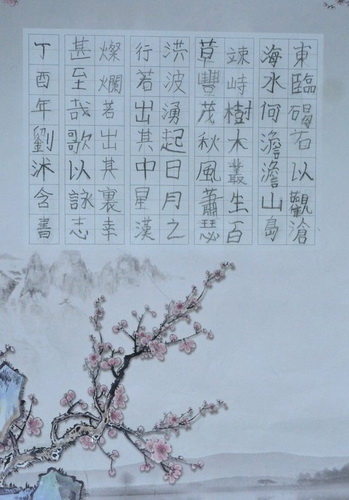 東臨碣石以觀滄
海水何澹澹山島
竦峙樹木叢生百
草豐茂秋風蕭瑟
洪波湧起日月之
行若出其中星漢
燦爛若出其裏幸
甚至哉歌以詠志
丁酉年劉沭含書